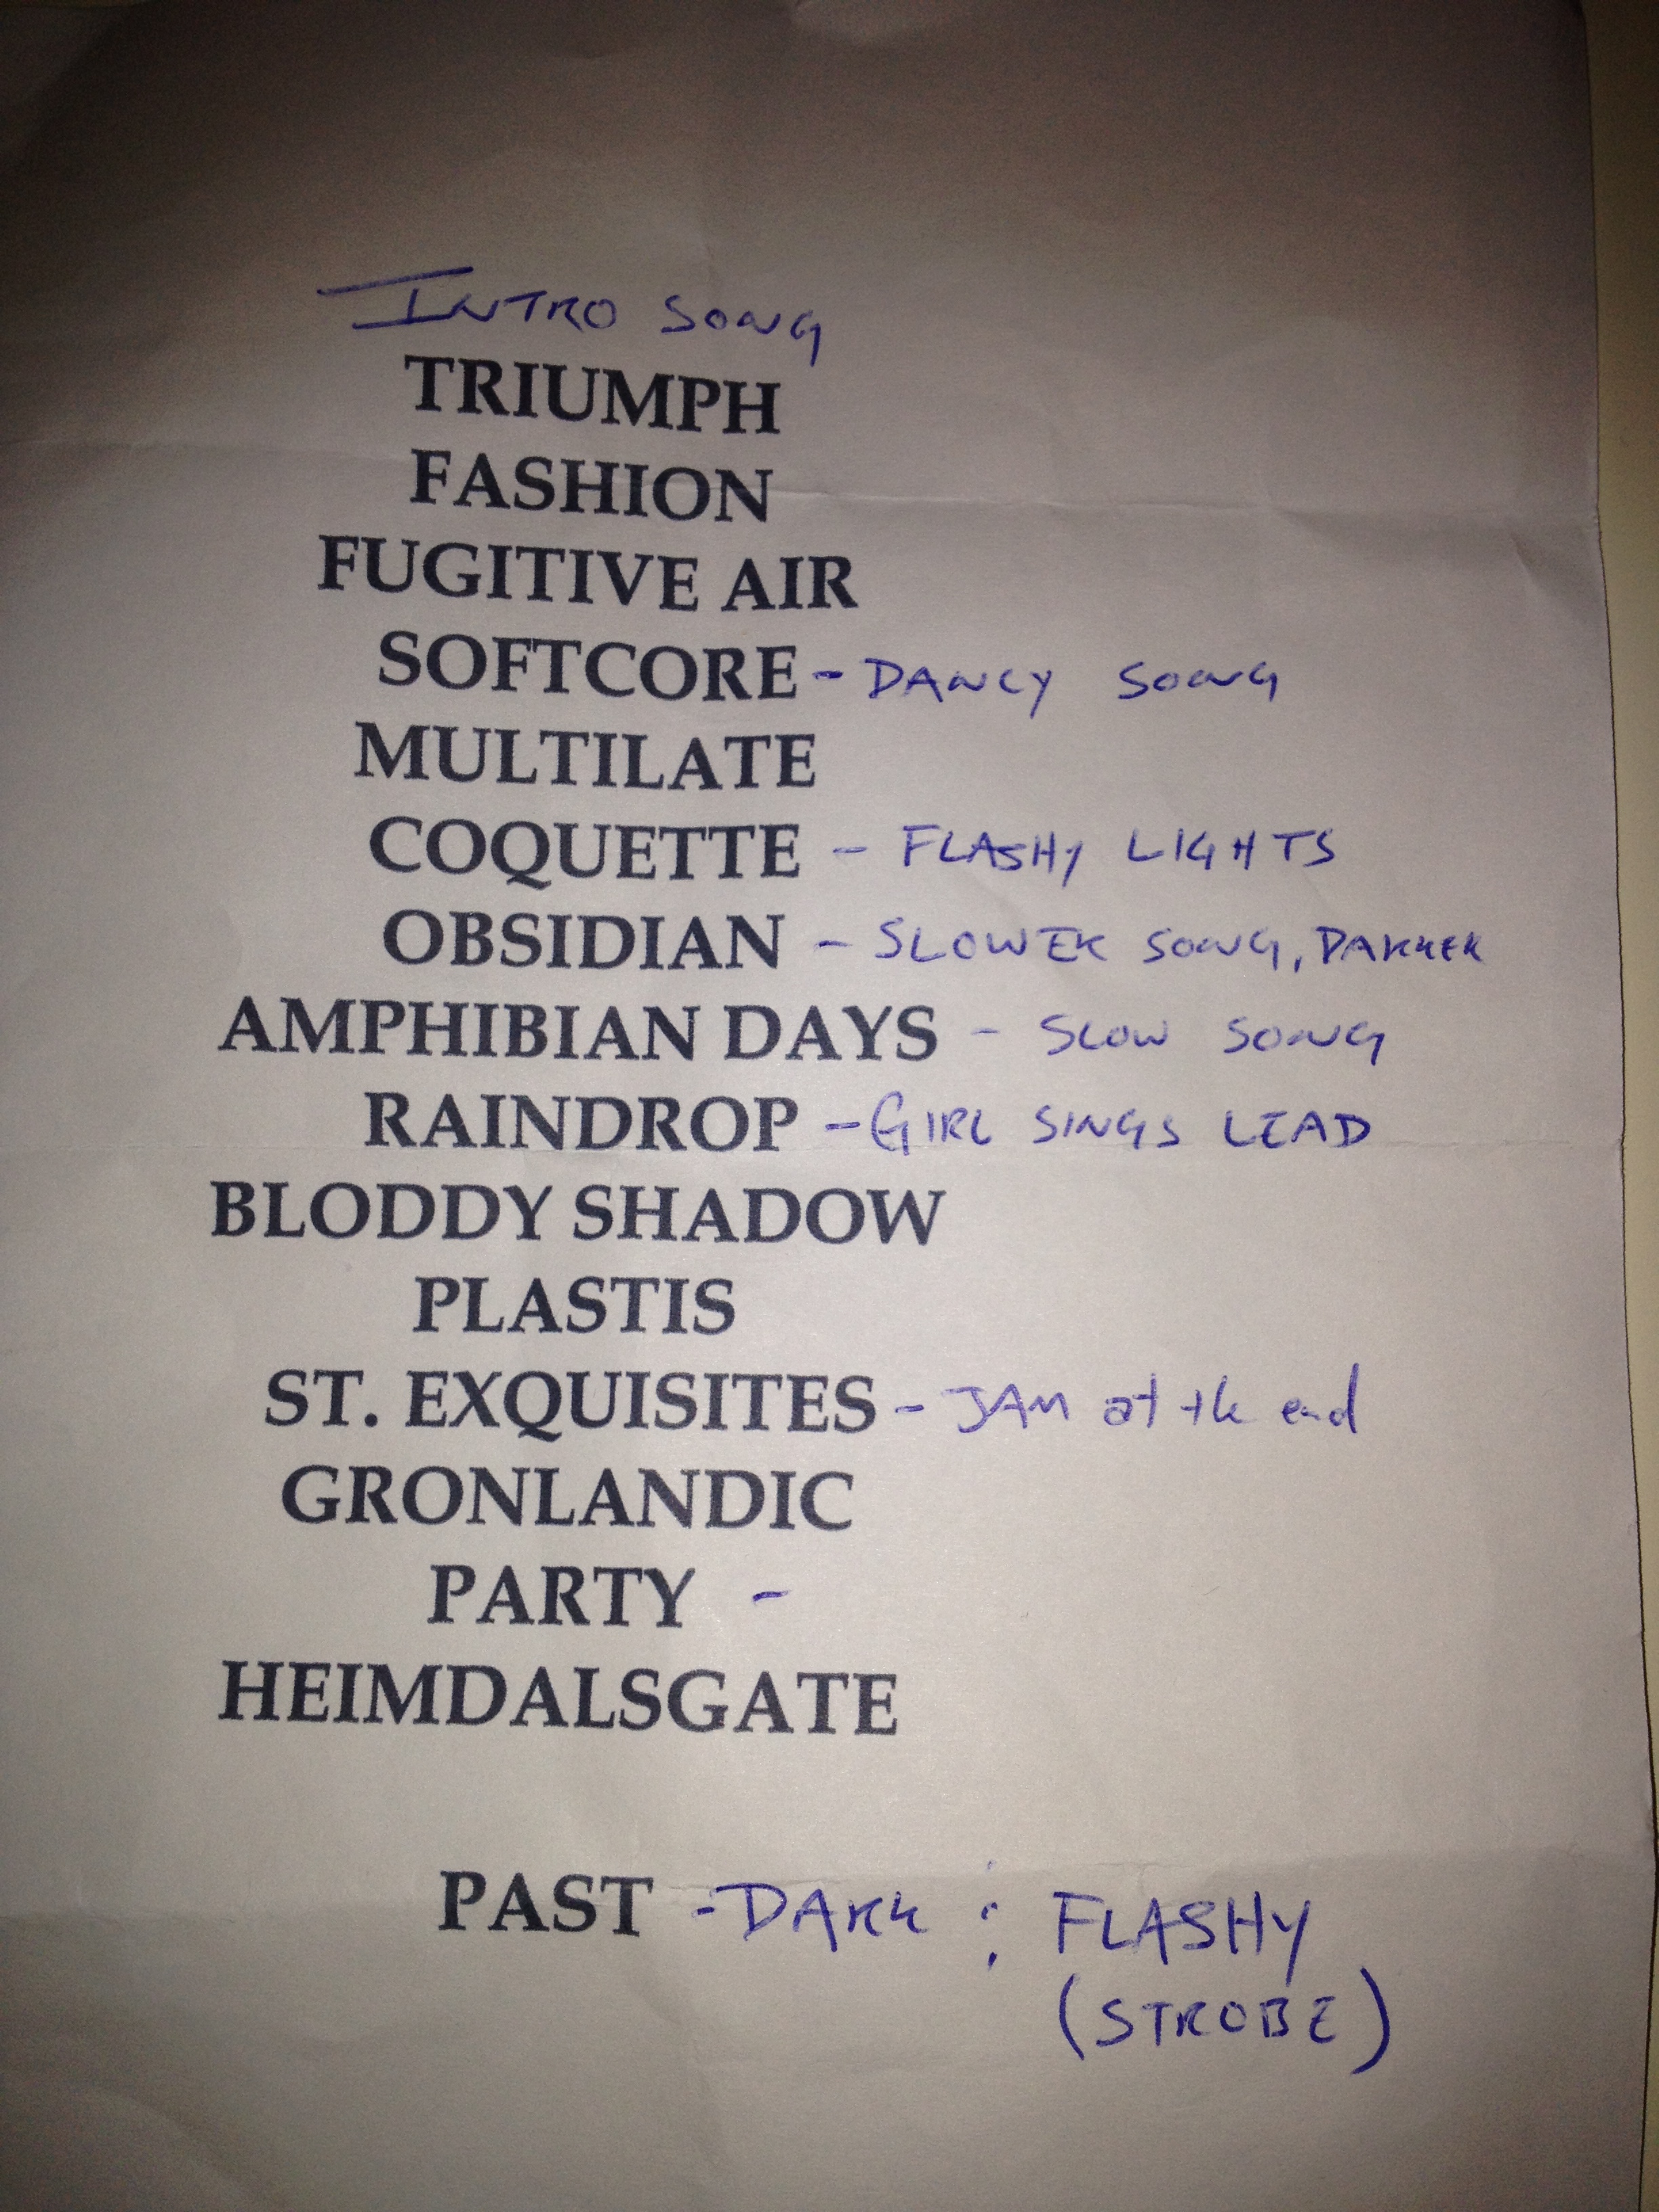 INTRO SONG
TRIUMPH
FASHION
FUGITIVE AIR
SOFTCORE - DANCY SONG
MULTILATE
COQUETTE - FLASHY LIGHTS
OBSIDIAN - SLOWER SONG, DARKER
AMPHIBIAN DAYS - SLOW SONG
RAINDROP - GIRL SINGS LEAD
BLODDY SHADOW
PLASTIS
ST. EXQUISITES - JAM at the end
GRONLANDIC
PARTY -
HEIMDALSGATE
PAST - DARK : FLASHY
(STROBE)